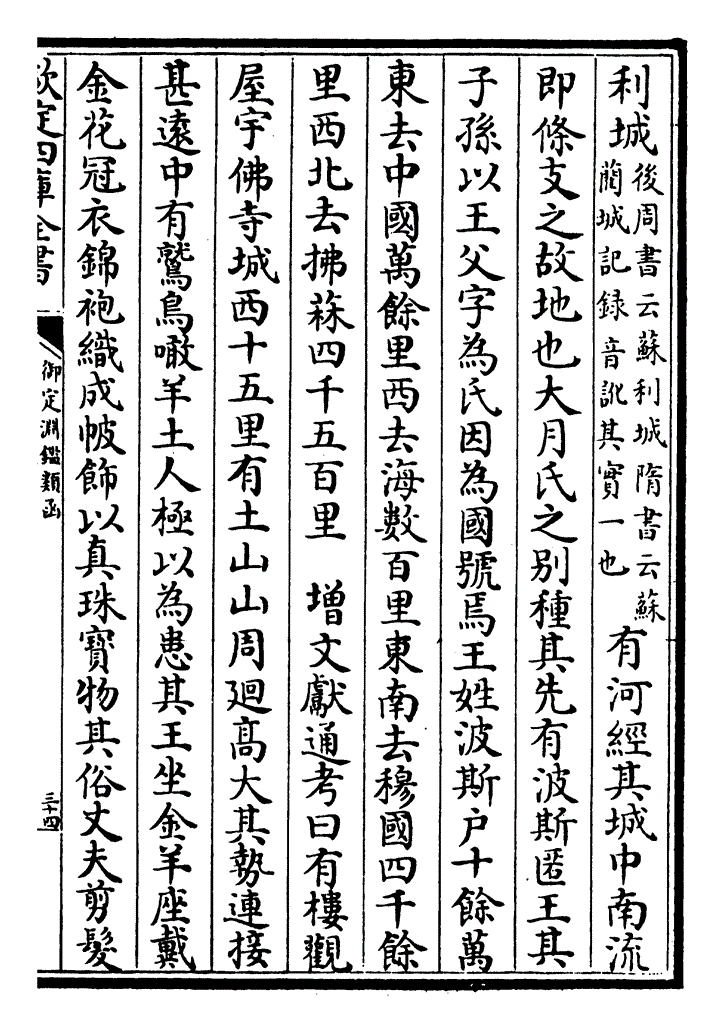 利城後周書云蘇利城隋書云蘇藺城記録音訛其實一也有河經其城中南流
即條支之故地也大月氏之别種其先有波斯匿王其
子孫以王父字為氏因為國號焉王姓波斯户十餘萬
東去中國萬餘里西去海數百里東南去穆國四千餘
里西北去拂菻四千五百里　增文獻通考曰有樓觀
屋宇佛寺城西十五里有土山山周迴髙大其勢連接
甚遠中有鷲鳥噉羊土人極以為患其王坐金羊座戴
金花冠衣錦袍織成帔飾以真珠寳物其俗丈夫剪髮
欽定四庫全書
御定淵鑑類函
三十四